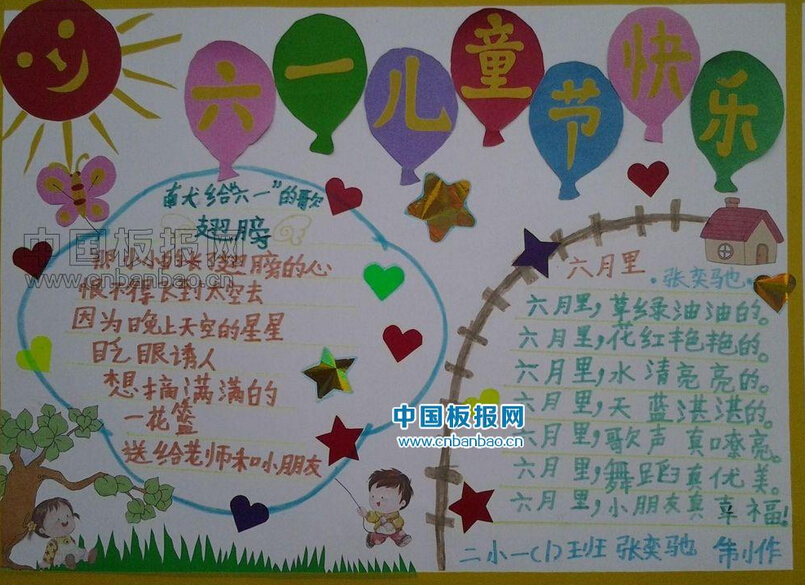 六一儿童节快乐
献给“六一”的歌
翅膀
那小小的长翅膀的心
恨不得长到太空去
因为晚上天空的星星
眨眼诱人
想摘满满的
一花篮
送给老师和小朋友
六月里
·张奕驰·
六月里,草绿油油的。
六月里,花红艳艳的。
六月里,水清亮亮的。
六月里,天蓝湛湛的。
六月里,歌声真嘹亮。
六月里,舞蹈真优美。
六月里,小朋友真幸福!
二小一(1)班 张奕驰 制作
中国板报网
www.cnbanbao.cn
中国板报网
www.cnbanbao.cn